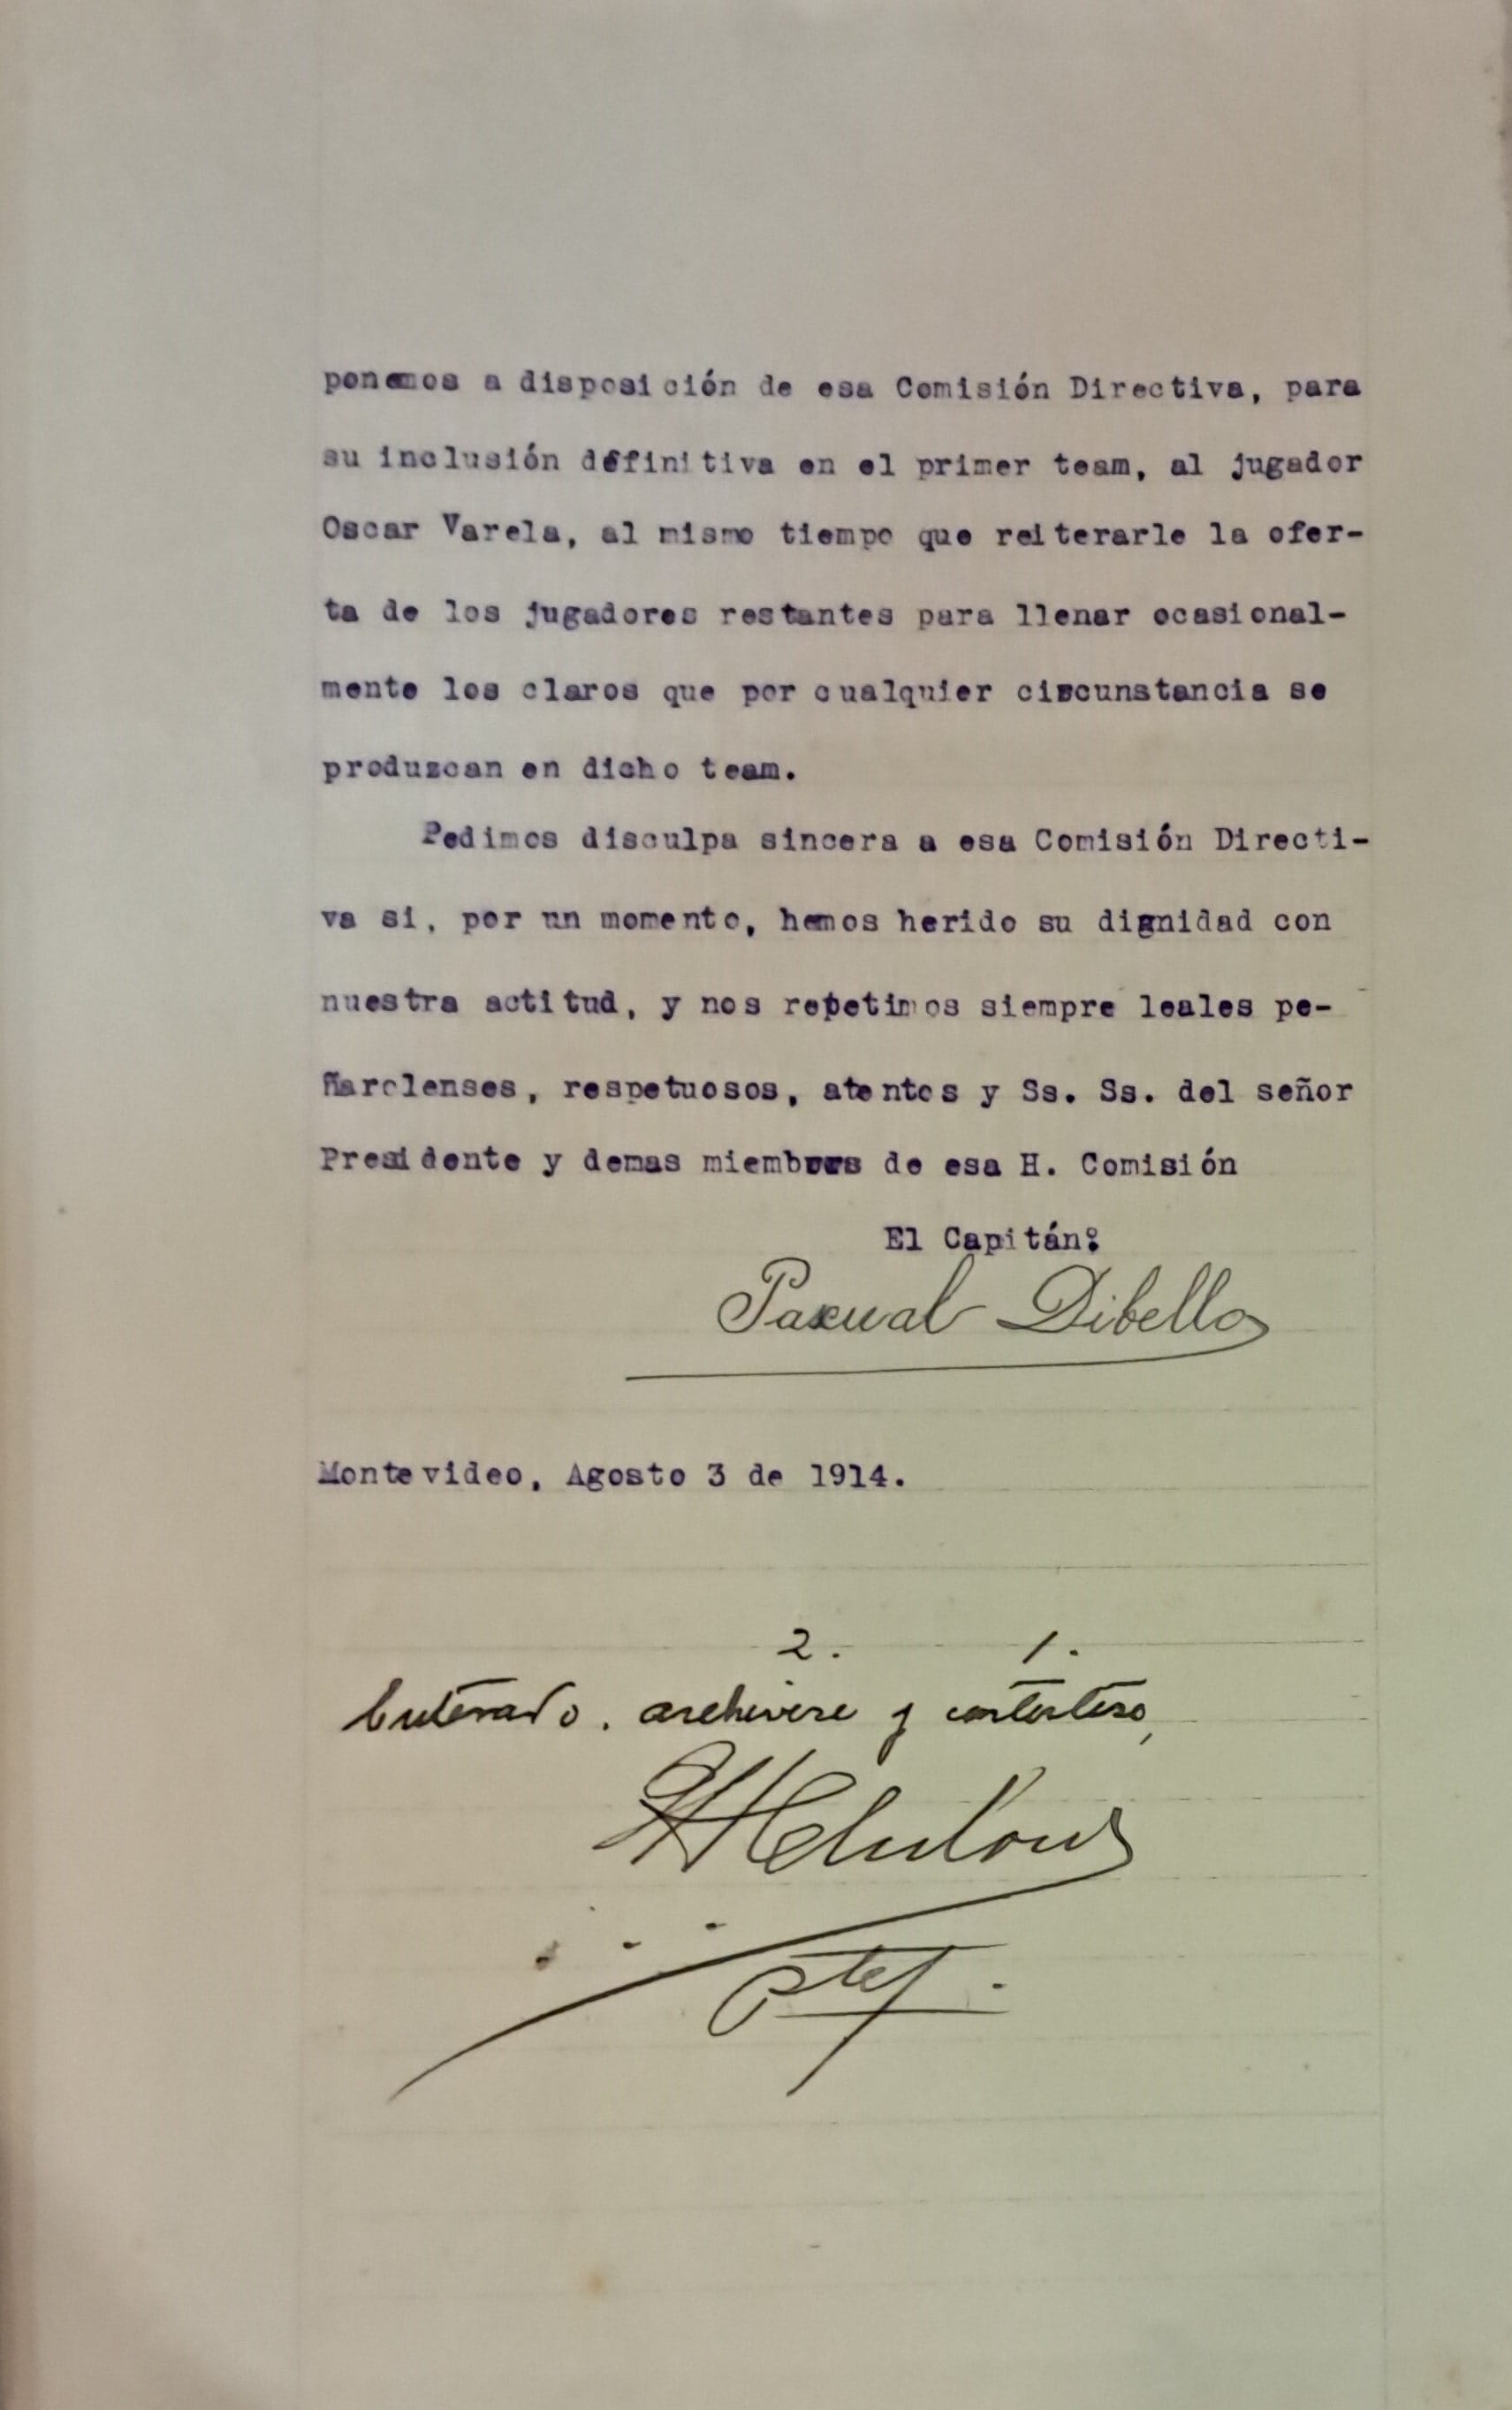 ponemos a disposición de esa Comisión Directiva, para
su inclusión definitiva en el primer team, al jugador
Oscar Varela, al mismo tiempo que reiterarle la ofer-
ta de los jugadores restantes para llenar ocasional-
mente los claros que por cualquier circunstancia se
produzcan en dicho team.
Pedimos disculpa sincera a esa Comisión Directi-
va si, por un momento, hemos herido su dignidad con
nuestra actitud, y nos repetimos siempre leales pe-
ñarolenses, respetuosos, atentos y Ss. Ss. del señor
Presidente y demas miembros de esa H. Comisión
El Capitán:
Pascual Dibello
Montevideo, Agosto 3 de 1914.
2. 1.
Enterado. archivese y contestese,
Pte.